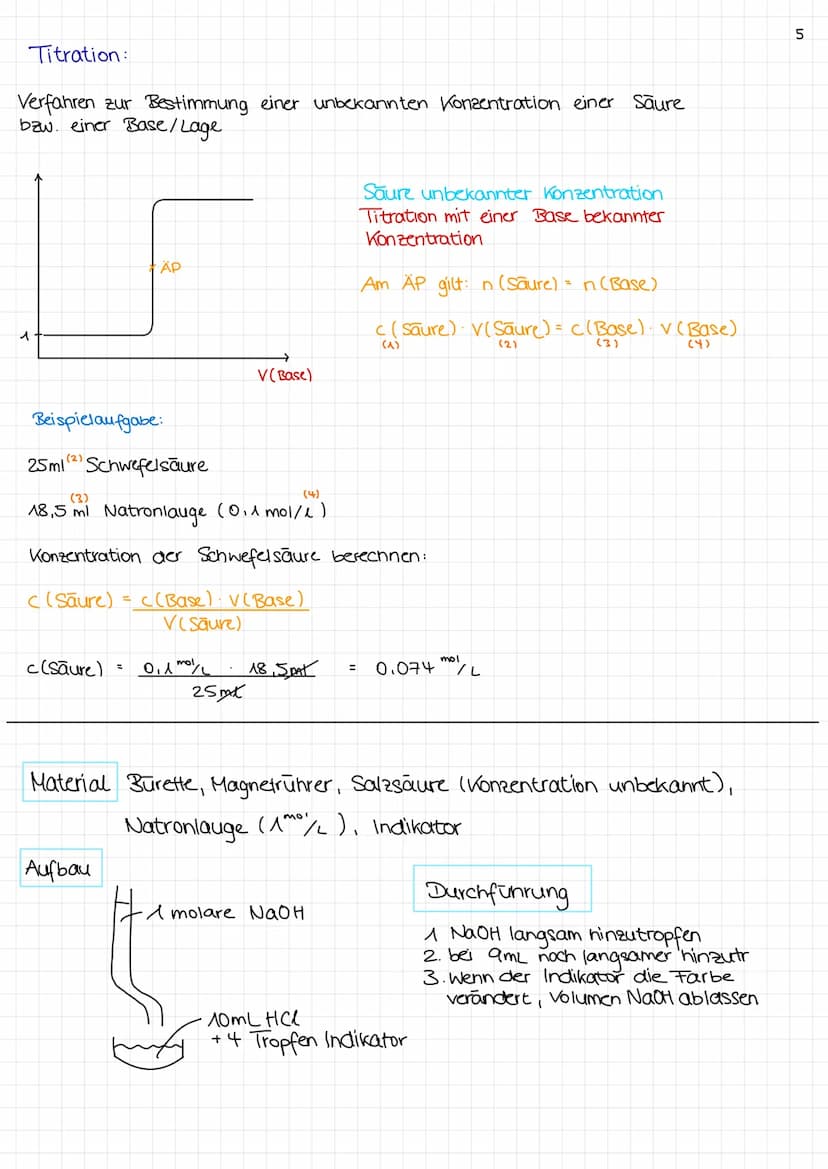 5
Titration:
Verfahren zur Bestimmung einer unbekannten Konzentration einer Säure
bzw. einer Base/Lage
Säure unbekannter Konzentration
Titration mit einer Base bekannter
Konzentration
ÄP
Am ÄP gilt: n(Säure) = n(Base)
c(Säure) · V(Säure) = c(Base) · V(Base)
(1) (2) (3) (4)
1
V(Base)
Beispielaufgabe:
25ml (2) Schwefelsäure
(3) (4)
18,5 ml Natronlauge (0,1 mol/L)
Konzentration der Schwefelsäure berechnen:
c(Säure) = c(Base) · V(Base)
V(Säure)
c(Säure) = 0,1 mol/L · 18,5 ml = 0,074 mol/L
25 ml
Material Bürette, Magnetrührer, Salzsäure (Konzentration unbekannt),
Natronlauge (1 mol/L), Indikator
Aufbau
Durchführung
1 molare NaOH
1 NaOH langsam hinzutropfen
2. bei 9mL noch langsamer hinzutr
3. wenn der Indikator die Farbe
verändert, Volumen NaOH ablassen
10mL HCl
+ 4 Tropfen Indikator